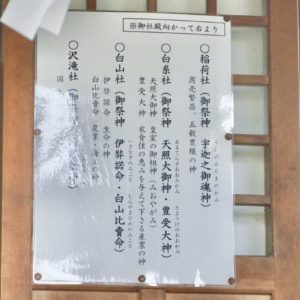 ※御社殿向かって右より
○稲荷社(御祭神 宇迦之御魂神)
商売繁昌、五穀豊穣の神
○白糸社(御祭神 天照大御神・豊受大神)
天照大御神 皇室の御祖神(みおやがみ)
豊受大神 衣食住の恵みを与えて下さる産業の神
○白山社(御祭神 伊弉諾命・白山比賣命)
伊弉諾命 生命の神
白山比賣命 農業・
○沢滝社(御
国土